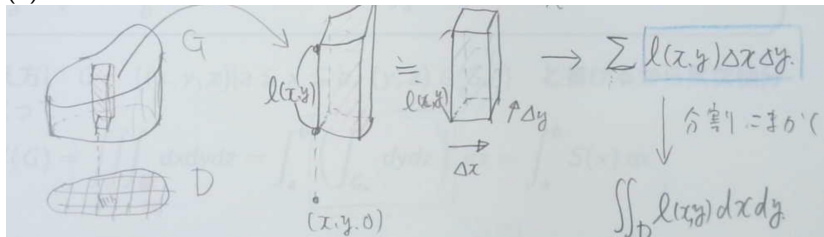 G
D
l(x,y)
(x,y,0)
≒
l(x,y)
Δx
↑Δy
→ Σ l(x,y)ΔxΔy.
分割こまかく
∬_D l(x,y)dxdy.